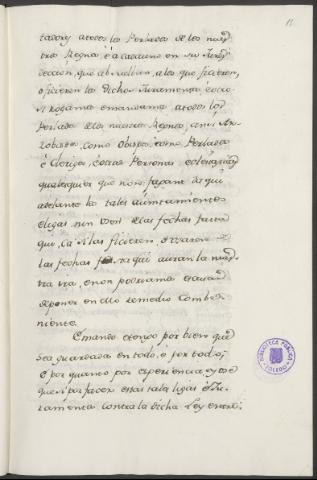 tados, y a todos los Perlados de los nues-
tros Regnos, e a cada uno en su Juris-
diccion, que absuelvan a los que ficieren,
o ficieren los dichos Juramentos, e otro
si Rogamos e mandamos a todos los
Perlados de los nuestros Regnos, ansi Ar-
zobispos, como Obispos, como Perlados
e Clerigos, e otras Personas eclesiasticas
qualesquier que non fagan de aqui
adelante los tales ajuntamientos
e ligas, nin usen de las fechas fasta
qui, Ca si las ficieren, o usaren de
las fechas fasta qui auran la nues-
tra ira, e non podriamos escusar
de poner en ello remedio combe-
niente.
E mando e tengo por bien que
sea guardada en todo, e por todo,
e por quanto por experiencia, se ve
que si por facer estas tales ligas e Ju-
ramentos contra la dicha Ley en el
BIBLIOTECA PUBLICA
TOLEDO